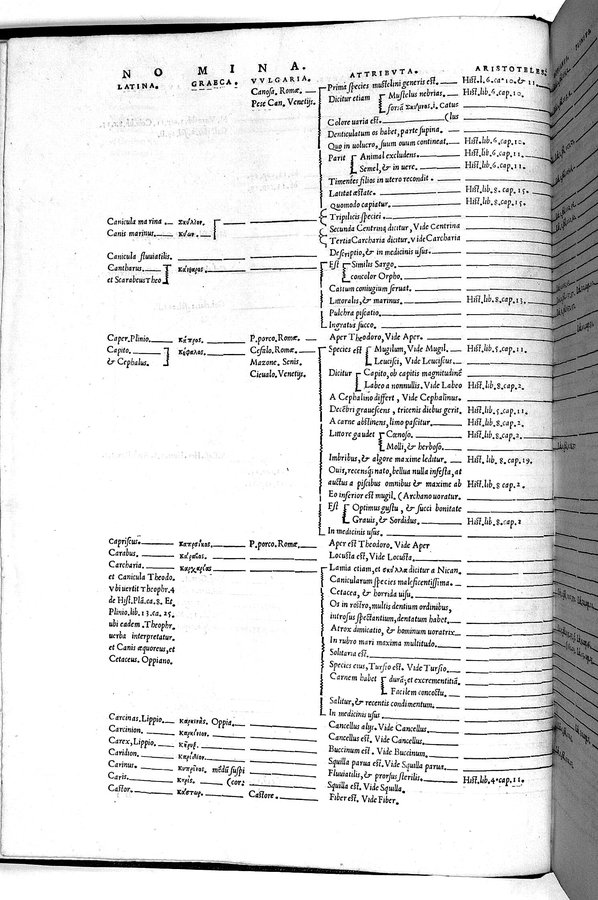 NOMINA.
LATINA. GRAECA. VVLGARIA. ATTRIBVTA. ARISTOTELES.
Canosa. Romæ. Prima species mustelini generis est. Hist.l.6.ca.10.& 11.
Pesce Can. Venetijs. Dicitur etiam Mustelus nebrias. Hist.lib.6.cap.10.
Catus
Colore uaria est. (lus
Denticulatum os habet, parte supina.
Quo in uolucro, suum ouum contineat. Hist.lib.6.cap.10.
Parit Animal excludens. Hist.lib.6.cap.11.
Semel, & in uere. Hist.lib.6.cap.11.
Timentes filios in utero recondit.
Latitat æstate. Hist.lib.8.cap.15.
Quomodo capiatur. Hist.lib.8.cap.15.
Canicula marina Σκύλιον. Triplicis speciei.
Canis marinus. Κύων. Secunda Centrina dicitur, Vide Centrina
Tertia Carcharia dicitur. vide Carcharia
Canicula fluuiatilis. Descriptio, & in medicinis usus.
Cantharus. Κάνθαρος. Est Similis Sargo.
et Scarabeus Theo concolor Orpho.
Castum coniugium seruat.
Littoralis, & marinus. Hist.lib.8.cap.13.
Pulchra piscatio.
Ingratus succo.
Caper. Plinio. Κάπρος. P. porco. Romæ. Aper Theodoro, Vide Aper.
Capito. Κέφαλος. Cefalo. Romæ. Species est Mugilum, Vide Mugil. Hist.lib.5.cap.11.
& Cephalus. Mazone. Senis. Leucisci, Vide Leuciscus.
Cieualo. Venetijs. Dicitur Capito, ob capitis magnitudinē
Labeo a nonnullis. Vide Labeo Hist.lib.8.cap.2.
A Cephalino differt, Vide Cephalinus.
Decēbri grauescens, tricenis diebus gerit. Hist.lib.5.cap.11.
A carne abstinens, limo pascitur. Hist.lib.8.cap.2.
Littore gaudet Cœnoso. Hist.lib.8.cap.2.
Molli, & herboso.
Imbribus, & algore maxime leditur. Hist. lib. 8.cap.19.
Ouis, recensq; nato, bellua nulla infesta, at
auctus a piscibus omnibus & maxime ab Hist.lib.8.cap.2.
Eo inferior est mugil. (Archano uoratur.
Est Optimus gustu, & succi bonitate
Grauis, & Sordidus. Hist.lib.8.cap.2
In medicinis usus.
Capriscus. Καπρίσκος. P. porco. Romæ. Aper est Theodoro. Vide Aper
Carabus. Κάραβος. Locusta est, Vide Locusta.
Carcharia. Καρχαρίας Lamia etiam, et σκύλλα dicitur a Nican.
et Canicula Theodo. Canicularum species maleficentissima.
vbi uertit Theophr. 4 Cetacea, & horrida uisu.
de Hist. Plā.ca.8. Et. Os in rostro, multis dentium ordinibus,
Plinio.lib.13.ca.25. introsus spectantium, dentatum habet.
ubi eadem. Theophr. Atrox dimicatio, & hominum uoratrix
uerba interpretatur. In rubro mari maxima multitudo.
et Canis æquoreus, et Solitaria est.
Cetaceus. Oppiano. Species eius, Tursio est. Vide Tursio.
Carnem habet dura, et excrementitiā.
Facilem concoctu.
Salitur, & recentis condimentum.
In medicinis usus
Carcinas, Lippio. Καρκίνας. Oppia. Cancellus alijs. Vide Cancellus.
Carcinion. Καρκίνιον. Cancellus est. Vide Cancellus.
Carex, Lippio. Κήρυξ. Buccinum est. Vide Buccinum.
Caridion. Καρίδιον. Squilla parua est. Vide Squilla parua.
Carinus. Κυπρῖνος. mēdū suspi Fluuiatilis, & prorsus sterilis. Hist.lib.4.cap.11.
Caris. Κᾶρίς. (cor: Squilla est. Vide Squilla.
Castor. Κάστωρ. Castore. Fiber est. Vide Fiber.